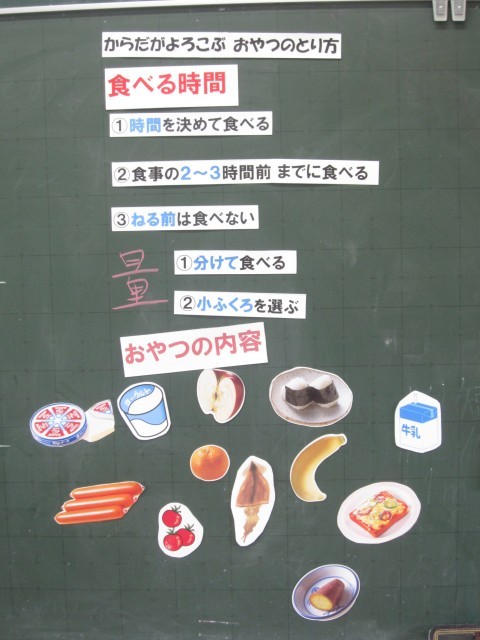 からだがよろこぶ おやつのとり方
食べる時間
①時間を決めて食べる
②食事の2～3時間前 までに食べる
③ねる前は食べない
量
①分けて食べる
②小ふくろを選ぶ
おやつの内容
ヨーグルト
牛乳